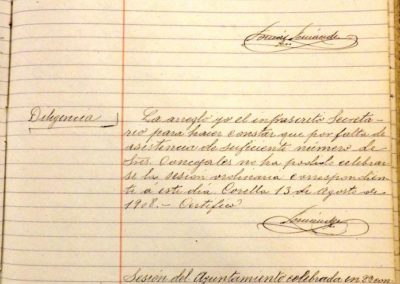 Diligencia
La arreglo yo el infrascrito Secreta-
rio para hacer constar que por falta de
asistencia de suficiente número de
Sres Concejales no ha podido celebrar
se la sesión ordinaria correspondien
te a este día. Corella 13 de Agosto de
1908.- Certifico
Sesión del Ayuntamiento celebrada en 2ª con